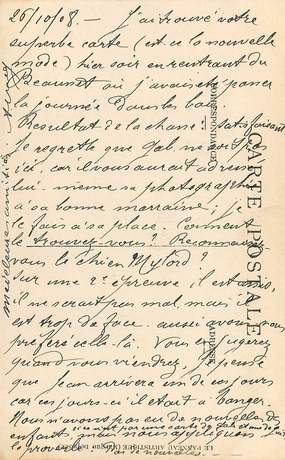 26/10/08. — J'ai trouvé votre
superbe carte (est-ce la nouvelle
mode) hier soir en rentrant du
Beaunet où j'avais été passer
la journée dans les bois.
Résultat de la chasse : satisfaisant
Je regrette que Gab. ne soit pas
ici, car il vous aurait adressé
lui-même sa photographie
à sa bonne marraine; je
le fais à sa place. Comment
le trouvez-vous? Reconnaissez
vous le chien Mylord?
Sur une 2e épreuve il est assis
il ne serait pas mal, mais il
est trop de face. aussi avons nous
préféré celle-là. Vous en jugerez
quand vous viendrez. Je pense
que Jean arrivera un de ces jours
car ces jours-ci il était à Tanger.
Nous n'avons pas eu de nouvelles de
si ce n'est par une carte de Gab et
enfants, mais nous appliquons
le proverbe pas de nouvelles
Meilleures amitiés
CARTE POSTALE
CORRESPONDANCE
ADRESSE